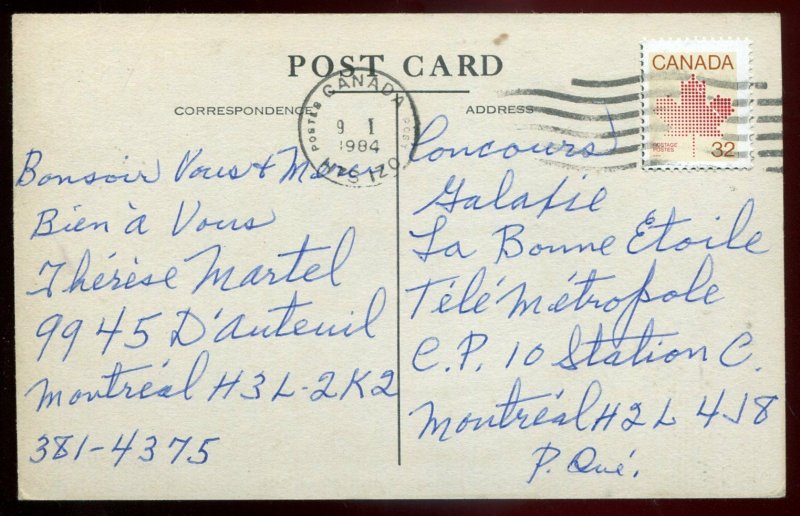 POST CARD
CORRESPONDENCE
ADDRESS
CANADA
POSTAGE
POSTES
32
CANADA
POSTES
POST
9 I
1984
Bonsoir Vous & Merci
Bien à Vous
Thérèse Martel
9945 D'Auteuil
Montréal H3L-2K2
381-4375
Concours
Galaxie
La Bonne Etoile
Télé Métropole
C.P. 10 Station C.
Montréal H2L 4J8
P. Qué.